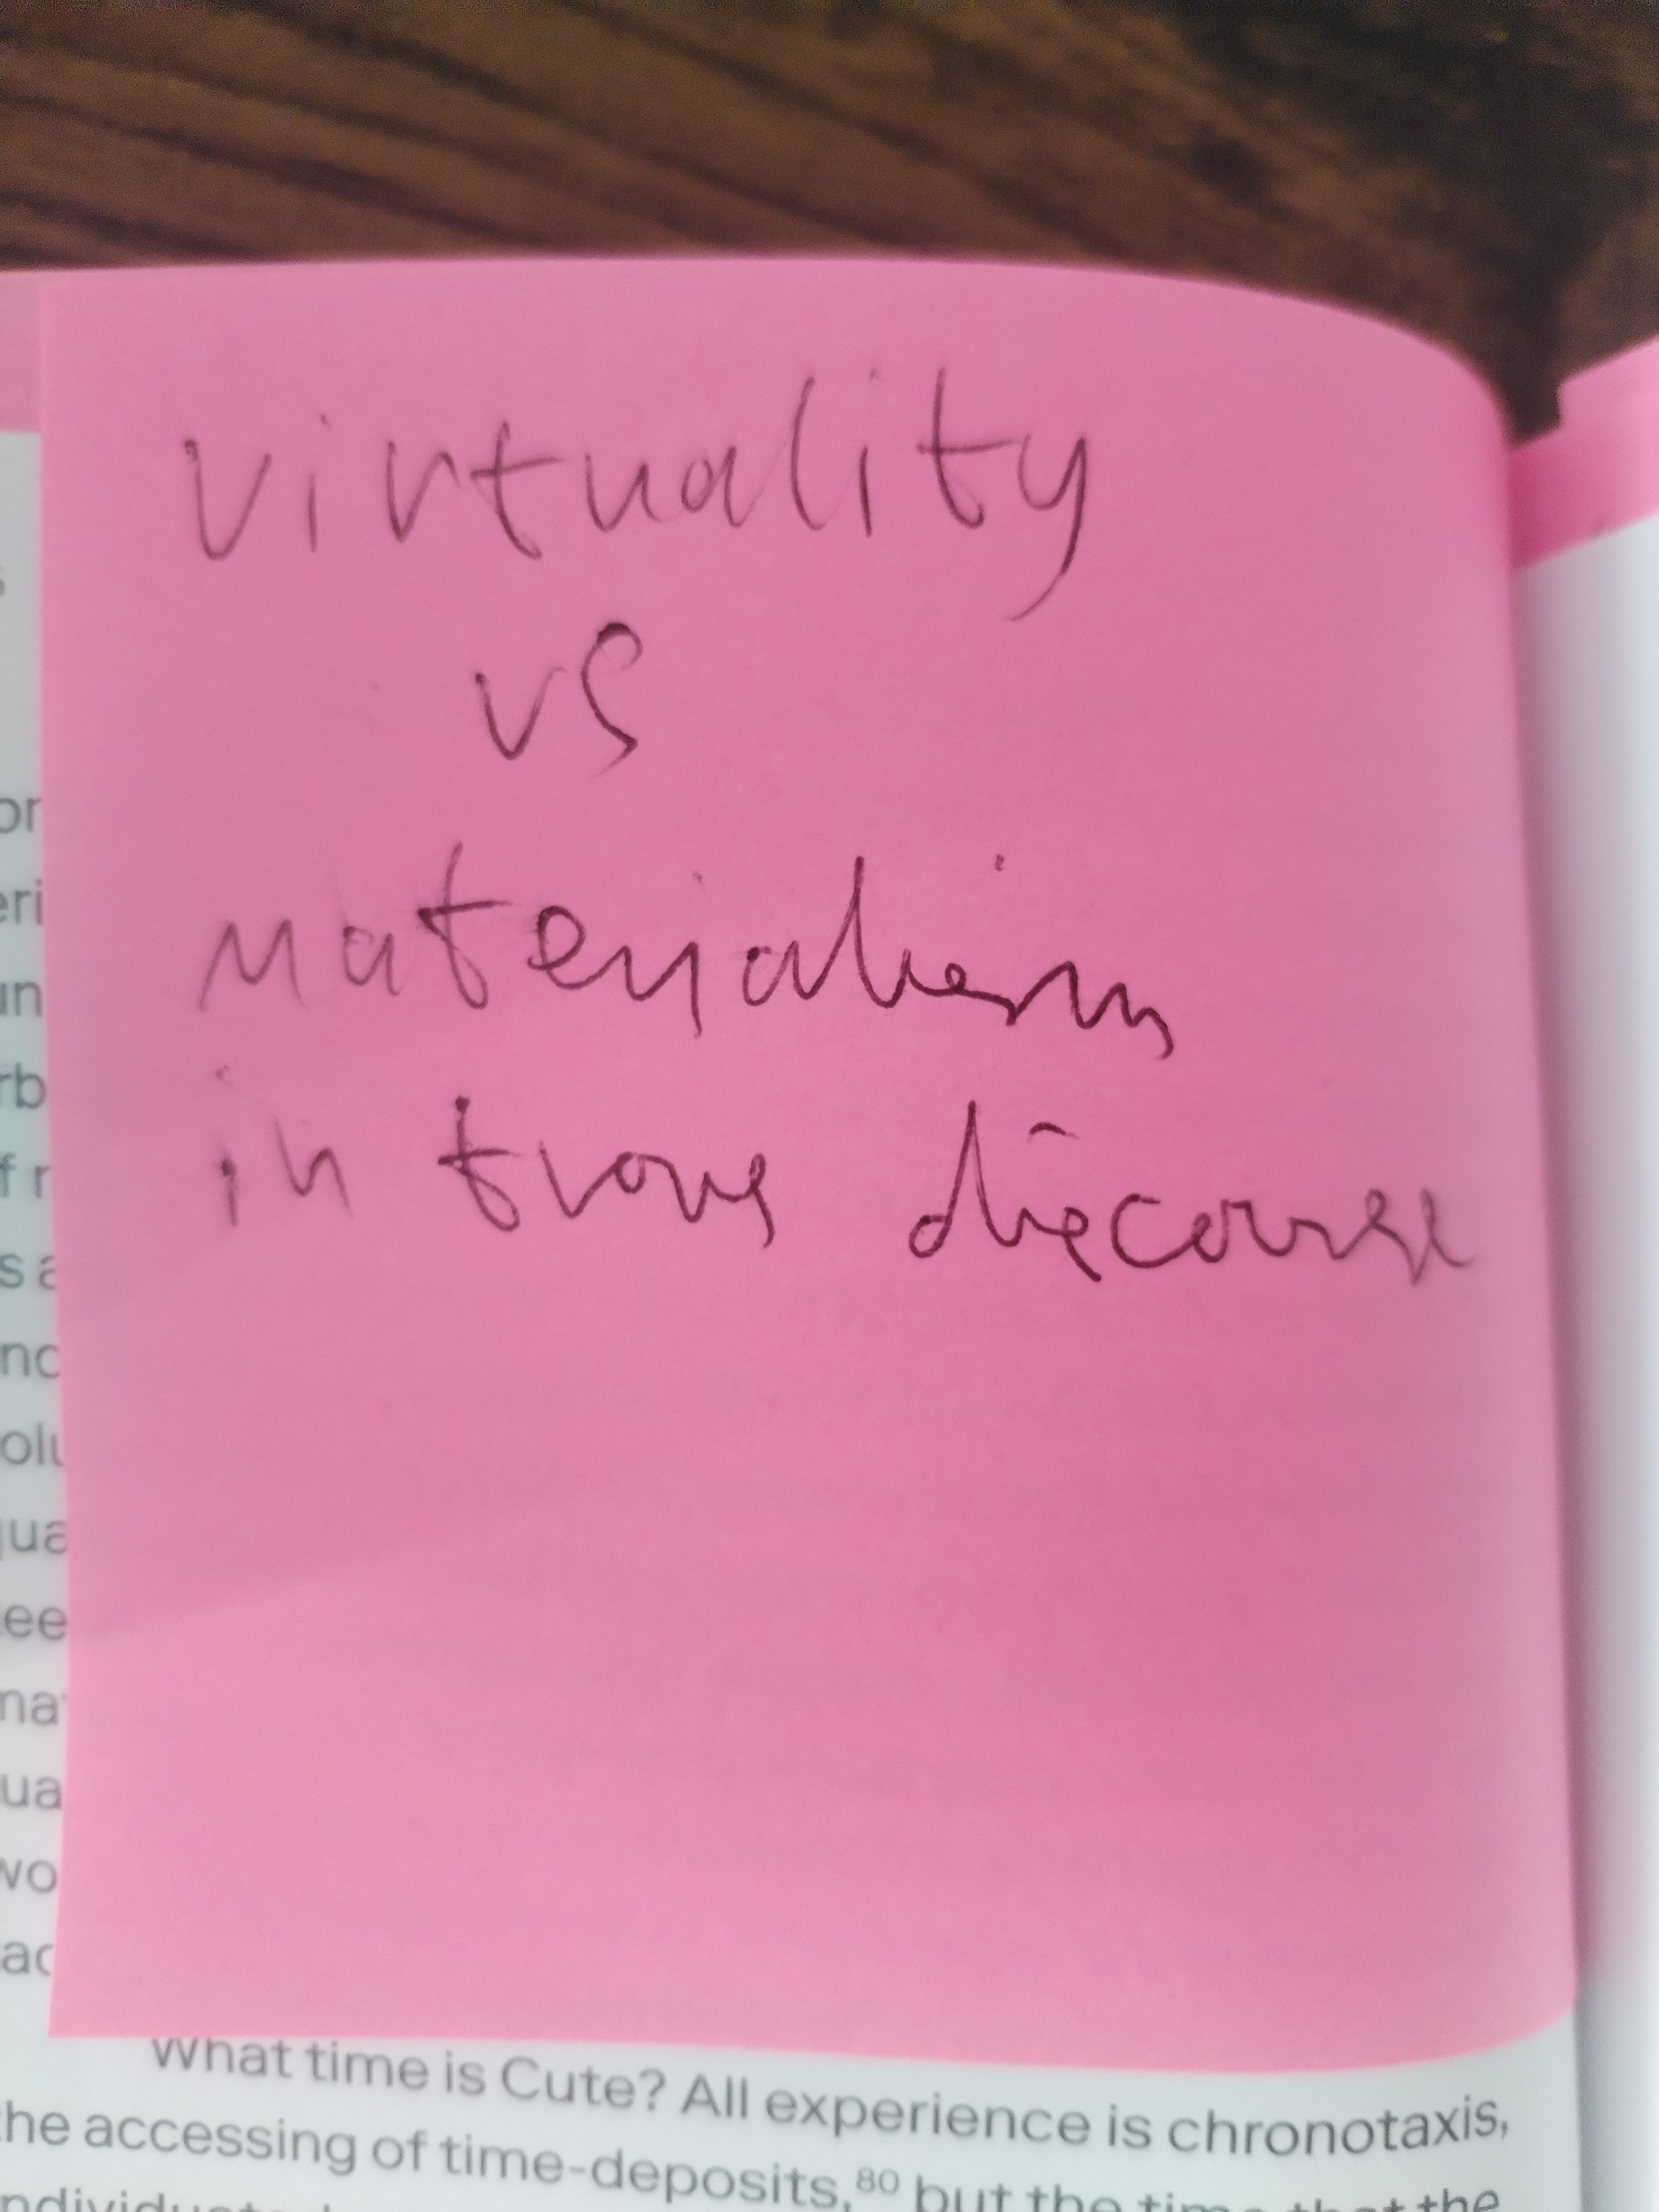 virtuality
vs
materialism
in trans discourse
or
eri
un
rb
f r
s a
nc
olu
qua
ee
na
ua
wo
ac
What time is Cute? All experience is chronotaxis,
the accessing of time-deposits,⁸⁰ but the time that the